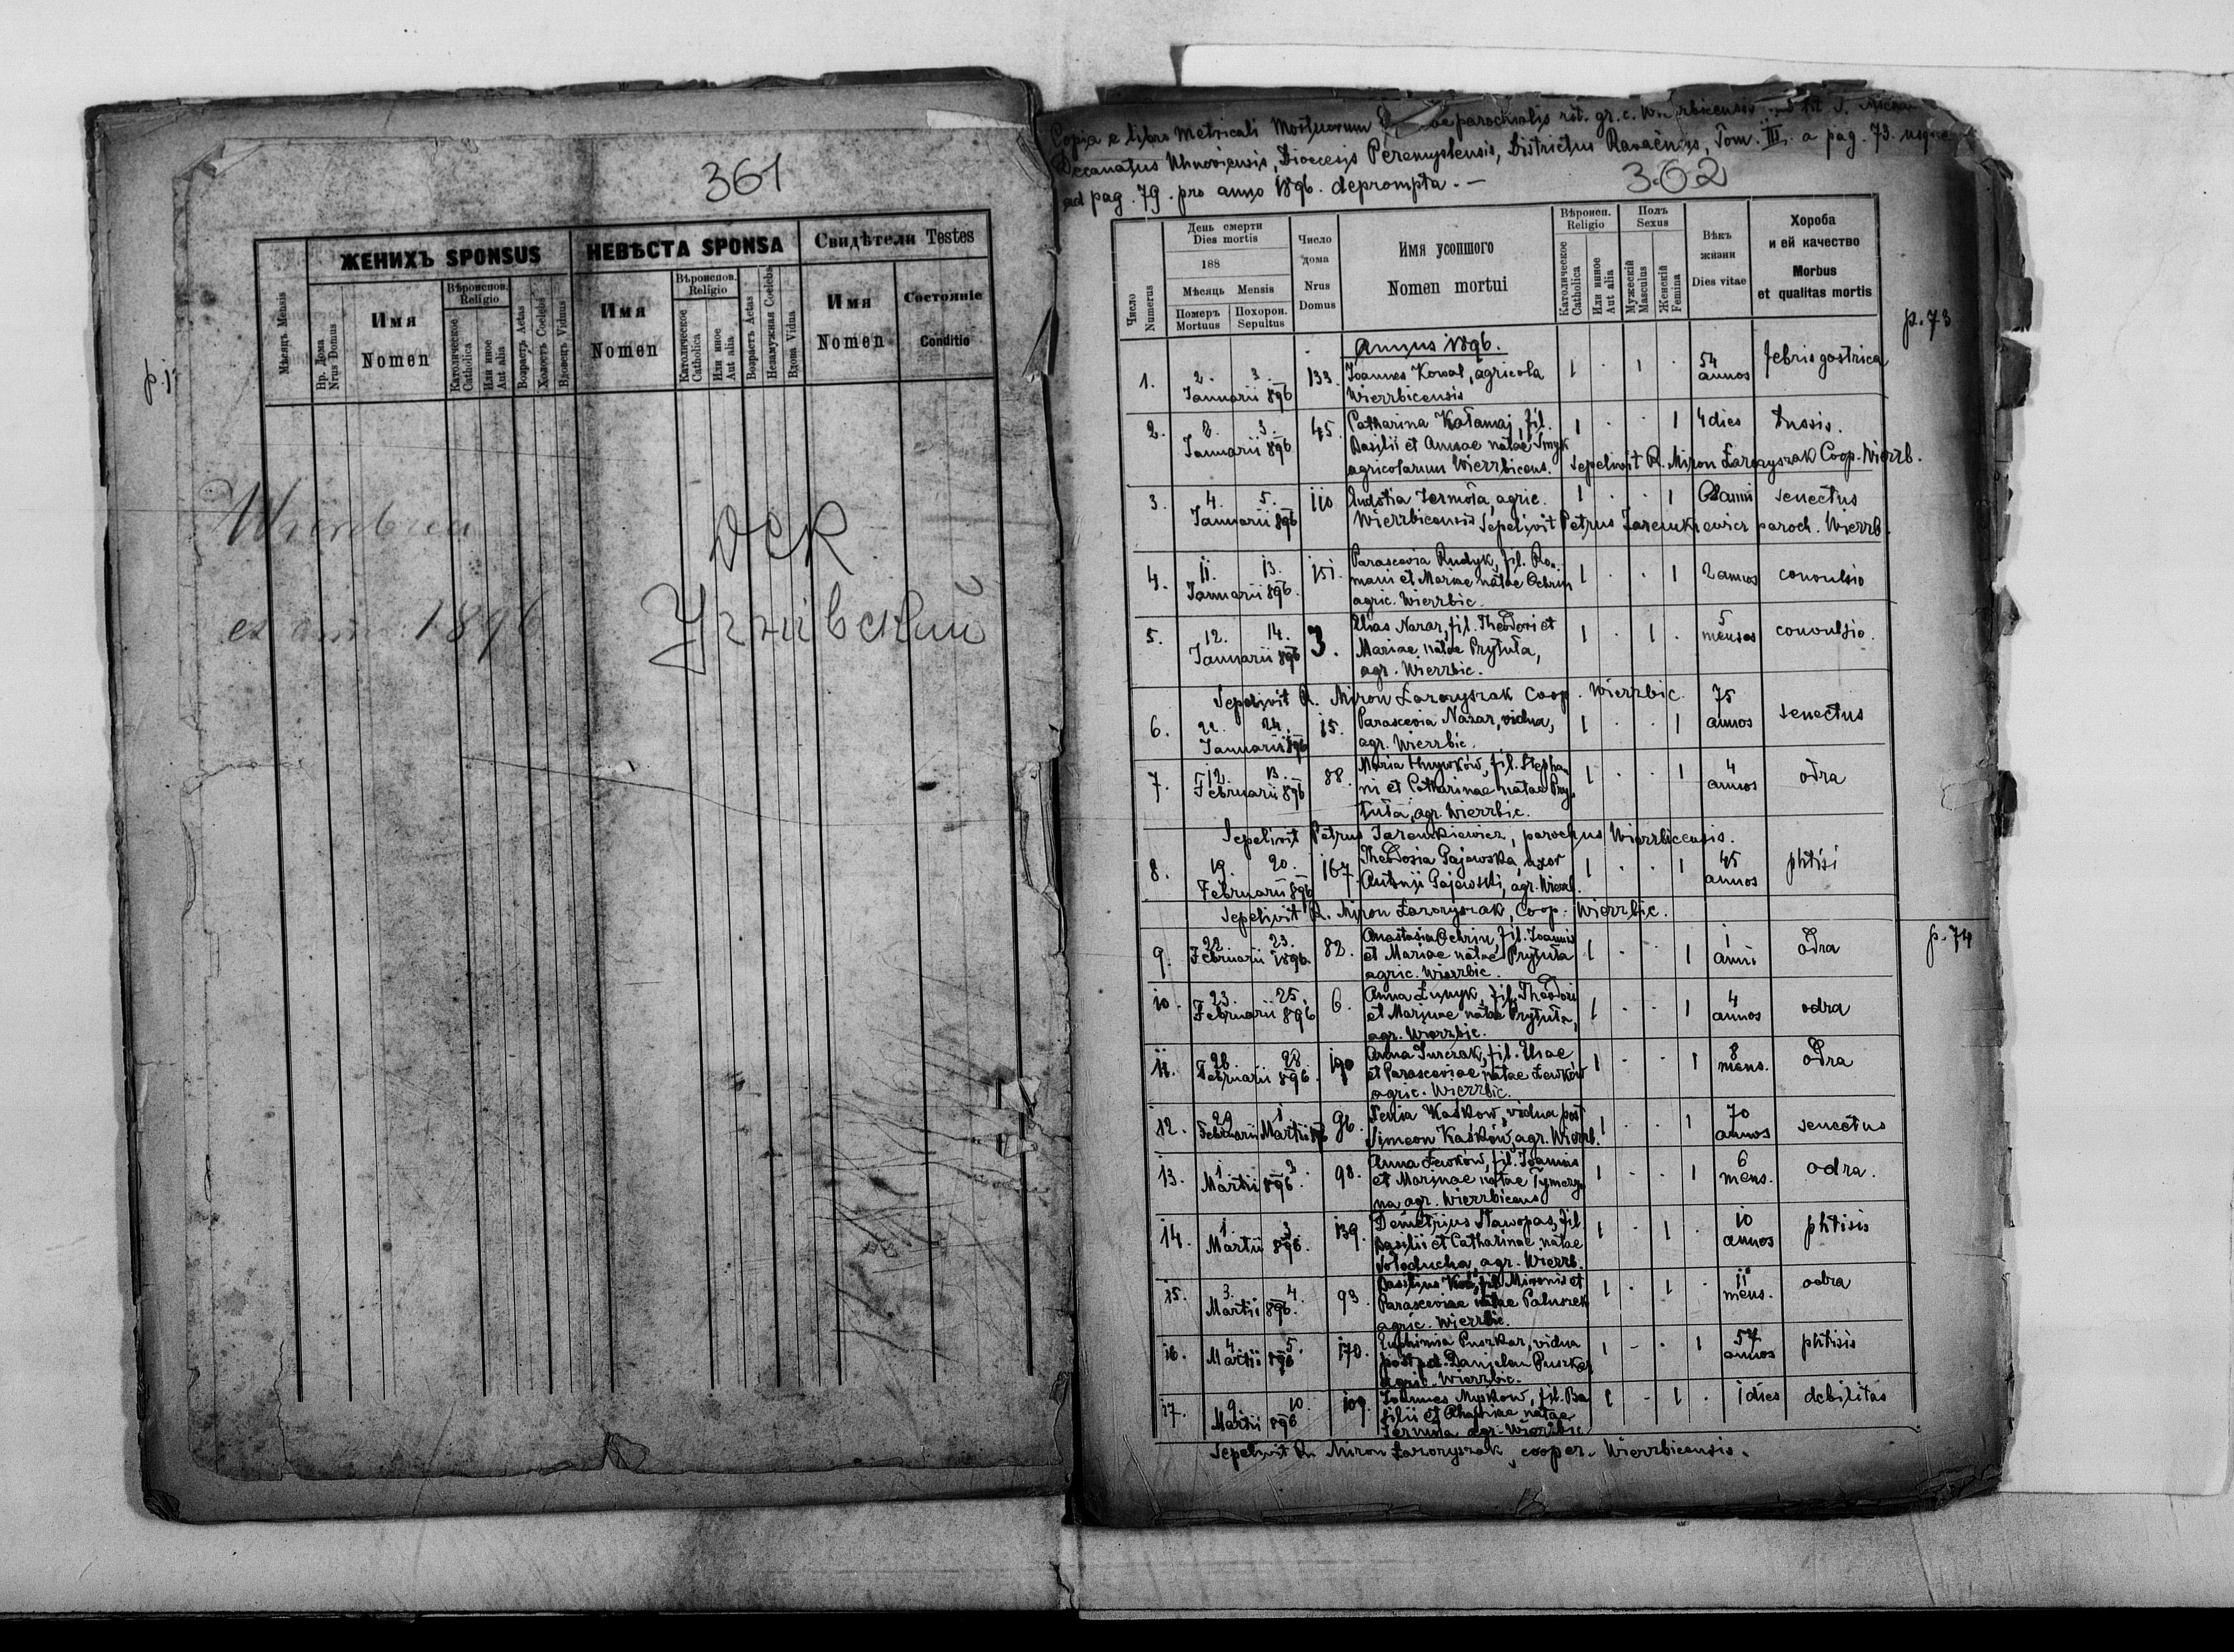 361
ЖЕНИХЪ SPONSUS
НЕВѢСТА SPONSA
Свидѣтели Testes
Мѣсяць Mensis
Нр. Дома
Nrus Domus
Имя
Nomen
Вѣроиспов.
Religio
Католическое
Catholica
Или иное
Aut alia
Возрастъ Aetas
Холостъ Coelebs
Вдовецъ Viduus
Имя
Nomen
Вѣроиспов.
Religio
Католическое
Catholica
Или иное
Aut alia
Возрастъ Aetas
Незамужная Coelebs
Вдова Vidua
Имя
Nomen
Состояніе
Conditio
1896
дек
Угнівский
Copia e libro Metricali Mortuorum parochialis rit. gr. c.
Decanatus Uhnoviensis, Dioecesis Peremysliensis, Districtus Ravaënsis, Tom. III. a pag. 73. usque
ad pag. 79. pro anno 1896. deprompta. —
362
Число
Numerus
День смерти
Dies mortis
188
Мѣсяць Mensis
Померъ
Mortuus
Похорон.
Sepultus
Число
дома
Nrus
Domus
Имя усопшого
Nomen mortui
Вѣроисп.
Religio
Католическое
Catholica
Или иное
Aut alia
Полъ
Sexus
Мужескій
Masculus
Женскій
Femina
Вѣкъ
жизни
Dies vitae
Хороба
и ей качество
Morbus
et qualitas mortis
p. 73
Annus 1896.
1. 2. 3. Januarii 896 133. Joannes Kowal, agricola 1 . 1 . 54 annos febris gastrica
Wierzbicensis
2. 2. 3. Januarii 896 45. Catharina Kałamaj, fil. 1 . . 1 4 dies tussis.
Basilii et Annae natae Smyk
agricolarum Wierzbicens. Sepelivit R. Miron Łazoryszak Coop. Wierzb.
3. 4. 5. Januarii 896 110 Eudotia Jermoła, agric. 1 . . 1 senectus
Wierzbicensis Sepelivit Petrus paroch. Wierzb.
4. 11. 13. Januarii 896. 151. Parascevia Rudyk, fil. Ro- 1 . . 1 2 annos convulsio
mani et Mariae natae Ochrin
agric. Wierzbic.
5. 12. 14. Januarii 896 3. Elias Nazar, fil. Theodori et 1 . 1 . 5 menses convulsio.
Mariae natae Prytuła,
agr. Wierzbic.
Sepelivit R. Miron Łazoryszak Coop. Wierzbic.
6. 22. 24. Januarii 896 15. Parascevia Nazar, vidua, 1 . . 1 75 annos senectus
agr. Wierzbic.
7. 12. 13. Februarii 896 88. Maria Hrywków, fil. Stepha- 1 . . 1 4 annos odra
ni et Catharinae natae Pry-
tuła, agr. Wierzbic.
Sepelivit Petrus parochus Wierzbicensis.
8. 19. 20. Februarii 896 167. Theodosia Gajewska, uxor 1 . . 1 45 annos phtisi
Antonii Gajewski, agr. Wierzb.
Sepelivit R. Miron Łazoryszak, Coop. Wierzbic.
p. 74
9. 22. 23. Februarii 1896. 82. Anastasia Ochrin, fil. Joannis 1 . . 1 1 anni odra
et Mariae natae Prytuła
agric. Wierzbic.
10. 23. 25. Februarii 896 6. Anna fil. Theodori 1 . . 1 4 annos odra
et Marinae natae Prytuła,
agr. Wierzbic.
11. 26. 28. Februarii 896. 190 Anna Jurczak, fil. Eliae 1 . . 1 8 mens. odra
et Parasceviae natae Lewków
agric. Wierzbic.
12. 29 Februarii 1 Martii 96. Xenia Kaśków, vidua post 1 . . 1 70 annos senectus
Simeon Kaśków, agr. Wierzb.
13. 1. 3. Martii 896. 98. Anna Lewków, fil. Joannis 1 . . 1 6 mens. odra.
et Marinae natae
agr. Wierzbicens
14. 1. 3 Martii 896. 139. Demetrius fil. 1 . 1 . 10 annos phtisis
Basilii et Catharinae natae
Sołoducha, agr. Wierzb.
15. 3. 4. Martii 896. 93. Basilius fil. Mironis et 1 . 1 . 11 mens. odra
Parasceviae natae Paluszek
agric. Wierzbic.
16. 4. 5. Martii 896 170. Euphimia Puszkar, vidua 1 - . 1 57 annos phtisis
post Danielem Puszkar
agric. Wierzbic.
17. 9. 10. Martii 896 109. Joannes Myśkow, fil. Ba- 1 - 1 . 1 dies debilitas
silii et natae
agr. Wierzbic
Sepelivit R. Miron Łazoryszak, cooper. Wierzbicensis.